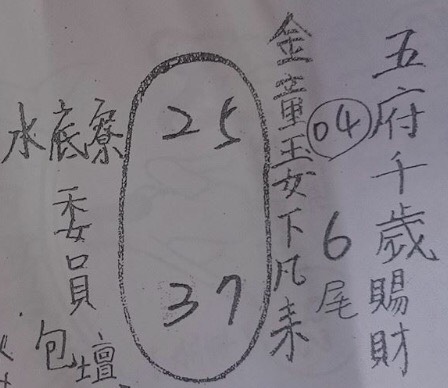 五府千歲賜財
04
6尾
金童玉女下凡來
25
37
水底寮
委員
包壇